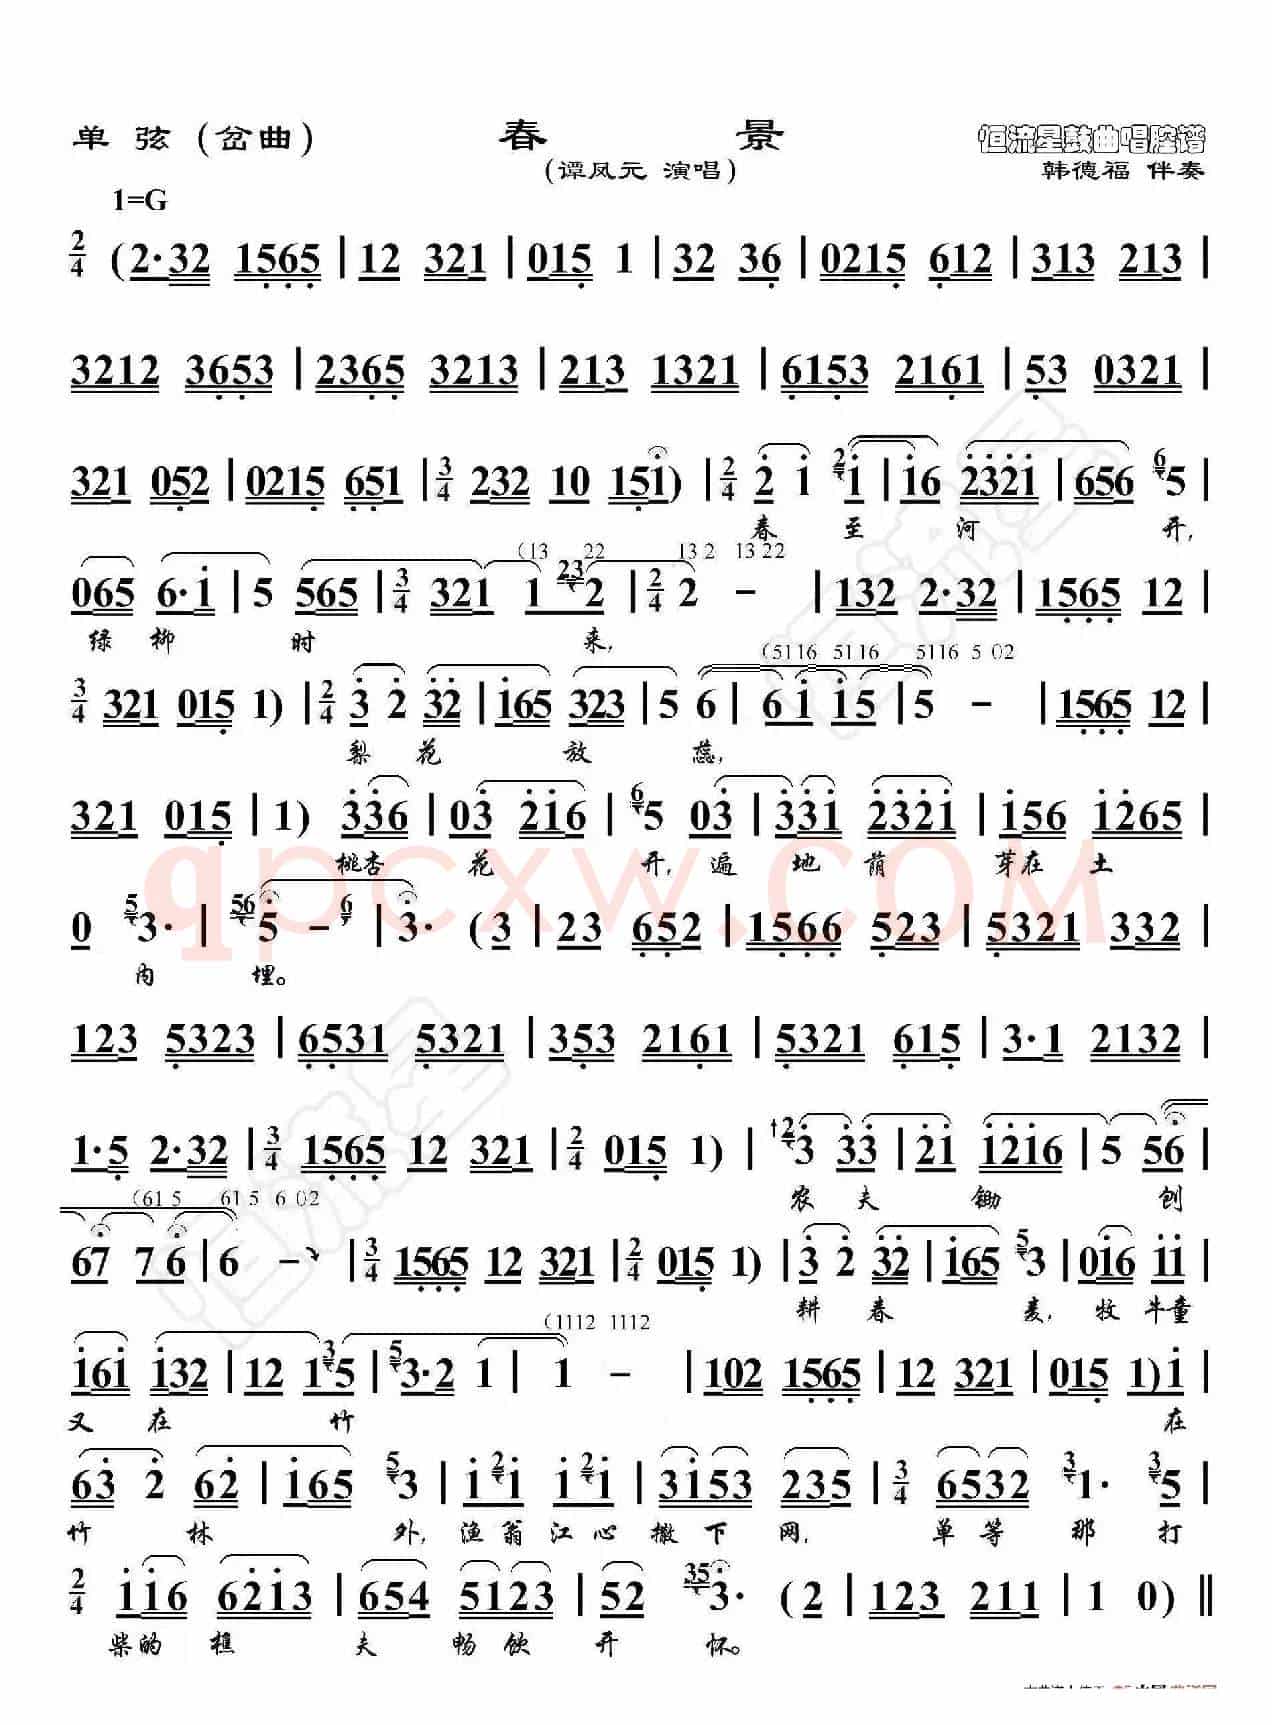 单 弦 (岔曲)
春 景
恒流星鼓曲唱腔谱
(谭凤元 演唱)
韩德福 伴奏
1=G
2/4 (2·32 1565 | 12 321 | 015 1 | 32 36 | 0215 612 | 313 213 |
3212 3653 | 2365 3213 | 213 1321 | 6153 2161 | 53 0321 |
321 052 | 0215 651 | 3/4 232 10 151) | 2/4 2 1 2 1 | 16 2321 | 656 6 5 |
春 至 河 开,
(13 22 13 2 13 22
065 6·1 | 5 565 | 3/4 321 1 23 2 | 2/4 2 - | 132 2·32 | 1565 12 |
绿 柳 时 来,
(5116 5116 5116 5 02
3/4 321 015 1) | 2/4 3 2 32 | 165 323 | 5 6 | 61 15 | 5 - | 1565 12 |
梨 花 放 蕊,
321 015 | 1) 336 | 03 216 | 6 5 03 | 331 2321 | 156 1265 |
桃杏 花 开, 遍 地 荫 芽在 土
0 5 3· | 56 5 - 6 | 3· (3 | 23 652 | 1566 523 | 5321 332 |
内 埋。
123 5323 | 6531 5321 | 353 2161 | 5321 615 | 3·1 2132 |
1·5 2·32 | 3/4 1565 12 321 | 2/4 015 1) | 2 3 33 | 21 1216 | 5 56 |
农 夫 锄 刨
(61 5 61 5 6 02
67 76 | 6 - | 3/4 1565 12 321 | 2/4 015 1) | 3 2 32 | 165 5 3 | 016 11 |
耕 春 麦, 牧 牛童
(1112 1112
161 132 | 12 1 3 5 | 5 3·2 1 | 1 - | 102 1565 | 12 321 | 015 1) 1 |
又 在 竹 在
63 2 62 | 165 5 3 | 1 2 1 1 2 1 | 3153 235 | 3/4 6532 3 1· 3 5 |
竹 林 外, 渔 翁 江 心 撒 下 网, 单 等 那 打
2/4 116 6213 | 654 5123 | 52 35 3· (2 | 123 211 | 1 0) ‖
柴的 樵 夫 畅 饮 开 怀。
qpcxw.com
恒流星
恒流星